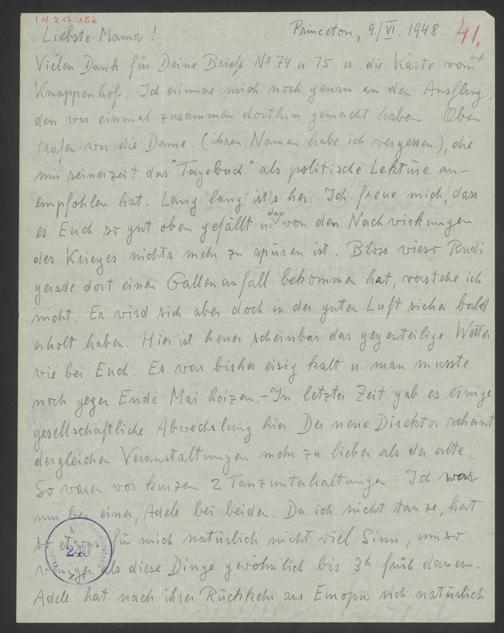 IN 213.156
Princeton, 9./VI. 1948.
41.
Liebste Mama!
Vielen Dank für Deine Briefe No 74 u. 75 u. die Karte vom
Knappenhof. Ich erinnere mich noch genau an den Ausflug,
den wir einmal zusammen dorthin gemacht haben. Oben
trafen wir die Dame (ihren Namen habe ich vergessen), die
mir seinerzeit das "Tagebuch" als politische Lektüre an-
empfohlen hat. Lang lang ist's her. Ich freue mich, dass
es Euch so gut oben gefällt u. dass von den Nachwirkungen
des Krieges nichts mehr zu spüren ist. Bloss wieso Rudi
gerade dort einen Gallenanfall bekommen hat, verstehe ich
nicht. Er wird sich aber doch in der guten Luft sicher bald
erholt haben. Hier ist heuer scheinbar das gegenteilige Wetter
wie bei Euch. Es war bisher eisig kalt u. man musste
noch gegen Ende Mai heizen.- In letzter Zeit gab es einige
gesellschaftliche Abwechslung hier. Der neue Direktor scheint
dergleichen Veranstaltungen mehr zu lieben als der alte.
So waren vor kurzem 2 Tanzunterhaltungen. Ich war
nur bei einer, Adele bei beiden. Da ich nicht tanze, hat
so etwas für mich natürlich nicht viel Sinn, umso
weniger als diese Dinge gewöhnlich bis 3h früh dauern.
Adele hat nach ihrer Rückkehr aus Europa sich natürlich
240